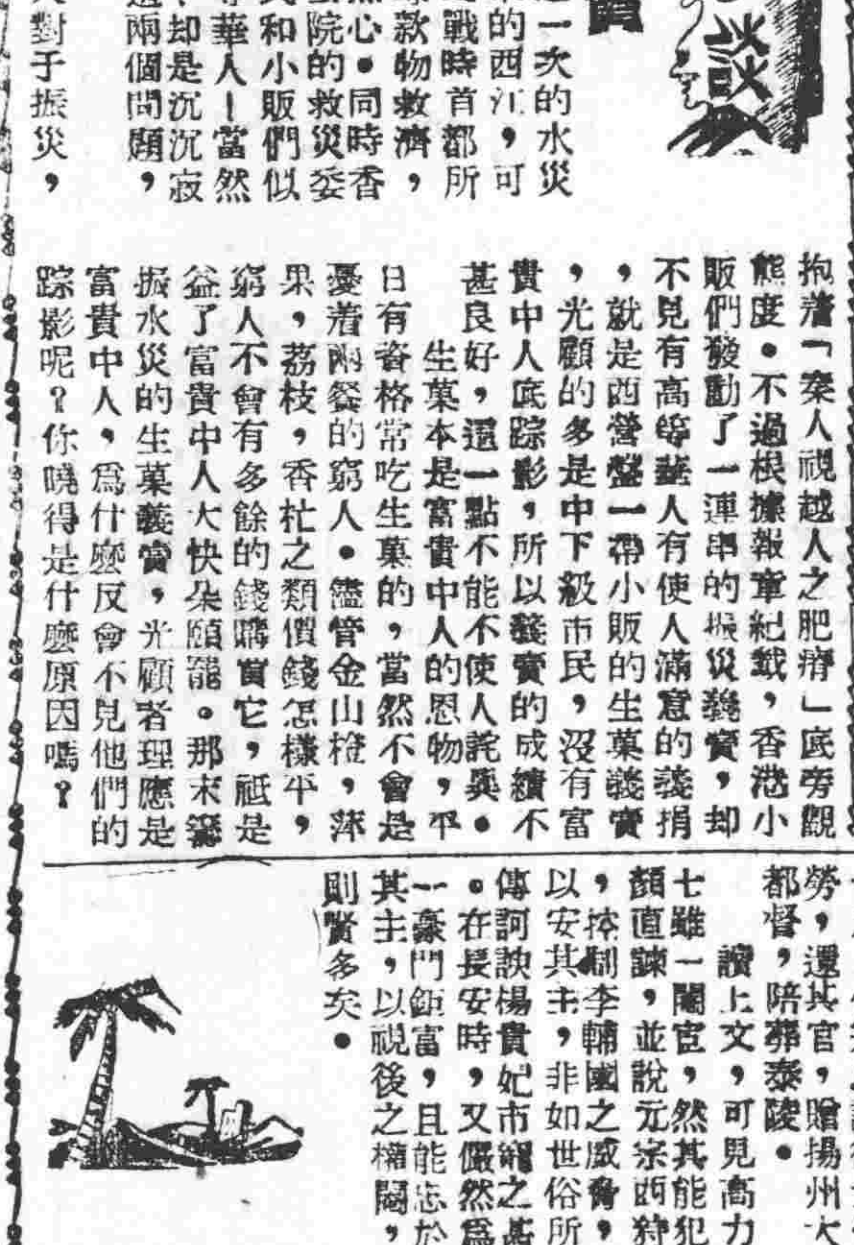 談
一次的水災
的西江，可
戰時首都所
款物救濟，
心●同時香
院的救災委
和小販們似
華人！當然
却是沉沉寂
兩個問題，
對于振災，
抱着「秦人視越人之肥瘠」底旁觀
態度●不過根據報章紀載，香港小
販們發動了一連串的振災義賣，却
不見有高等華人有使人滿意的義捐
，就是西營盤一帶小販的生菓義賣
，光顧的多是中下級市民，沒有富
貴中人底踪影，所以義賣的成績不
甚良好，這一點不能不使人詫異●
生菓本是富貴中人的恩物，平
日有資格常吃生菓的，當然不會是
憂着兩餐的窮人●儘管金山橙，萍
果，荔枝，香杧之類價錢怎樣平，
窮人不會有多餘的錢購買它，祗是
益了富貴中人大快朵頤罷。那末爲
振水災的生菓義賣，光顧者理應是
富貴中人，爲什麽反會不見他們的
踪影呢？你曉得是什麽原因嗎？
勞，還其官，贈揚州大
都督，陪葬泰陵●
讀上文，可見高力
七雖一閹宦，然其能犯
顏直諫，並說元宗西狩
，控制李輔國之威脅，
以安其主，非如世俗所
傳訶諛楊貴妃市寵之甚
。在長安時，又儼然爲
一豪門鉅富，且能忠於
其主，以視後之權閹，
則賢多矣●